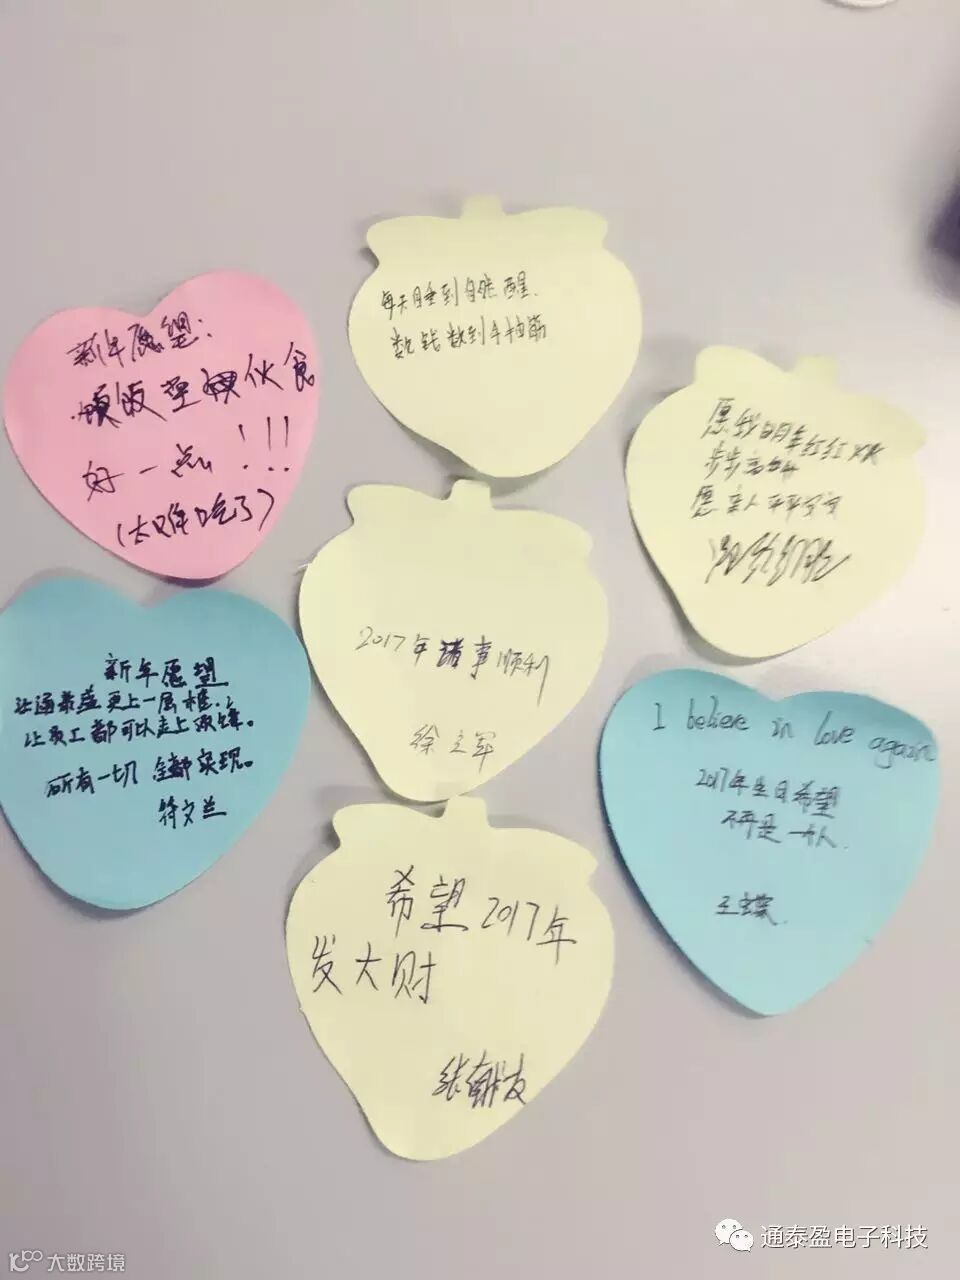 每天睡到自然醒.
数钱数到手抽筋
新年愿望:
伙食
好一点!!!
(太难吃了)
愿我明年红红火火
步步高升
愿亲人平平安安
2017年诸事顺利
徐立军
新年愿望
让通泰盈更上一层楼.
让员工都可以走上
所有一切 全都实现。
符文兰
I believe in love again
2017年生日希望
不再是一个人.
王
希望2017年
发大财
张
大数跨境
通泰盈电子科技